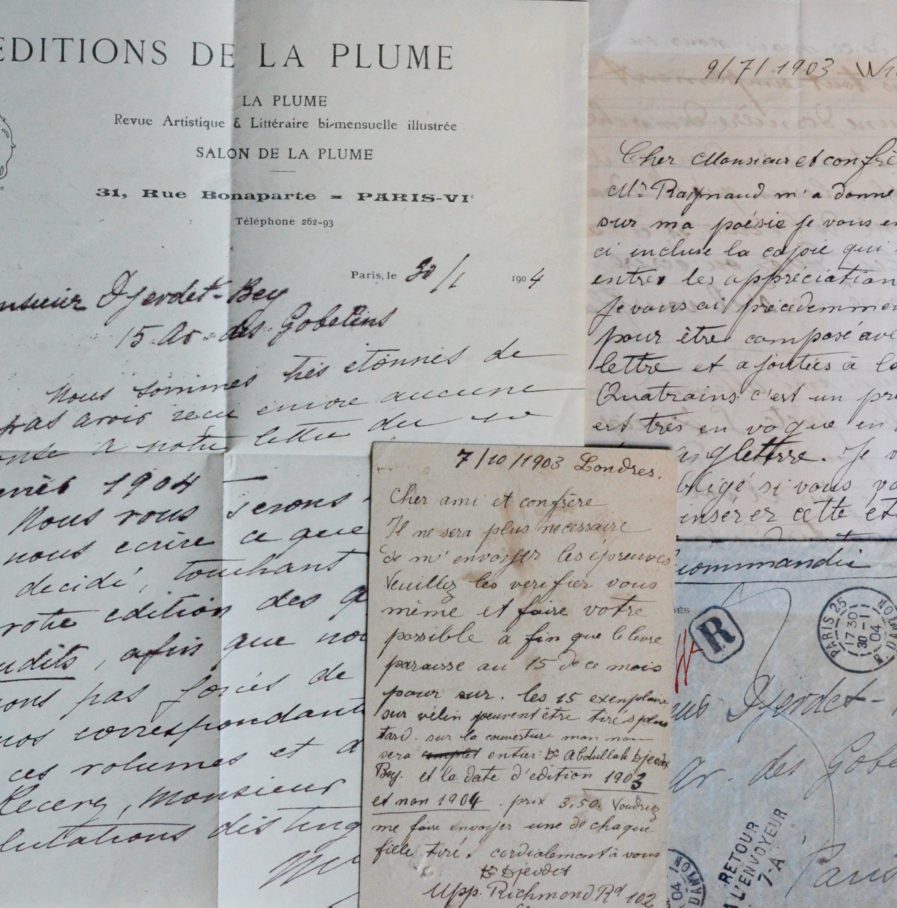 EDITIONS DE LA PLUME
LA PLUME
Revue Artistique & Littéraire bi-mensuelle illustrée
SALON DE LA PLUME
31, Rue Bonaparte = PARIS-VIᵉ
Téléphone 262-93
Paris, le 30/1 1904
Djevdet-Bey
15 Av. des Gobelins
Nous sommes très étonnés de
pas avoir reçu encore aucune
à notre lettre du
1904
Nous vous serons
nous écrire ce que
decidé, touchant
votre edition des
, afin que
pas forcés de
nos correspondant
ces volumes et
Recevez, Monsieur
9/7/1903
Cher Monsieur et confrè
Mr. Raymaud m'a donne
sur ma poésie je vous en
ci incluse la copie qui
entres les appréciation
Je vous ai précedemmen
pour être composé ave
lettre et ajoutées à la
Quatrains c'est un pr
est très en vogue en
Angleterre. Je v
obligé si vous vo
inserer cette et
7/10/1903 Londres.
Cher ami et confrère
Il ne sera plus necessaire
de m'envoyer les épreuves
Veuillez les verifier vous
même et faire votre
possible a fin que le livre
paraisse au 15 de ce mois
pour sur. les 15 exemplaire
sur vélin peuvent être tirés plus
tard. sur la couverture mon nom
sera entier: Dr Abdullah Djevdet
Bey. et la date d'edition 1903
et non 1904. prix 3.50. Voudriez
me faire envoyer une de chaque
cordialement à vous
Djevdet
Upp. Richmond Rd 102
R
PARIS 25
17 30
30-1
04
Djevdet-
av. des Gobe
Paris
RETOUR
A L'ENVOYEUR
7-A